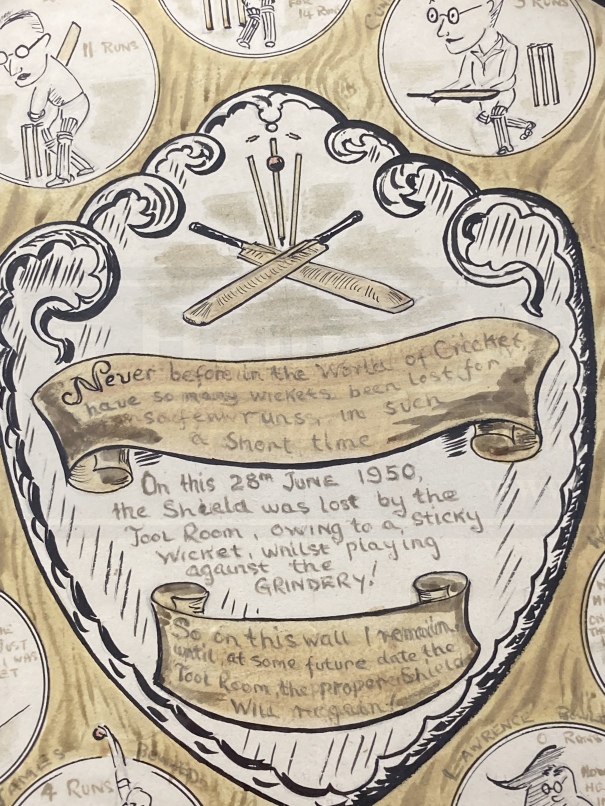 11 RUNS
FOR
14 RUNS
5 RUNS
Never before in the World of Cricket,
have so many wickets been lost for
so few runs, in such
a short time
On this 28th JUNE 1950,
the Shield was lost by the
Tool Room, owing to a sticky
wicket, whilst playing
against the
GRINDERY!
So on this wall I remain,
until, at some future date the
Tool Room, the proper Shield
Will regain!
JUST
I WAS
JAMES
BOWLED
4 RUNS
LAWRENCE
0 RUNS